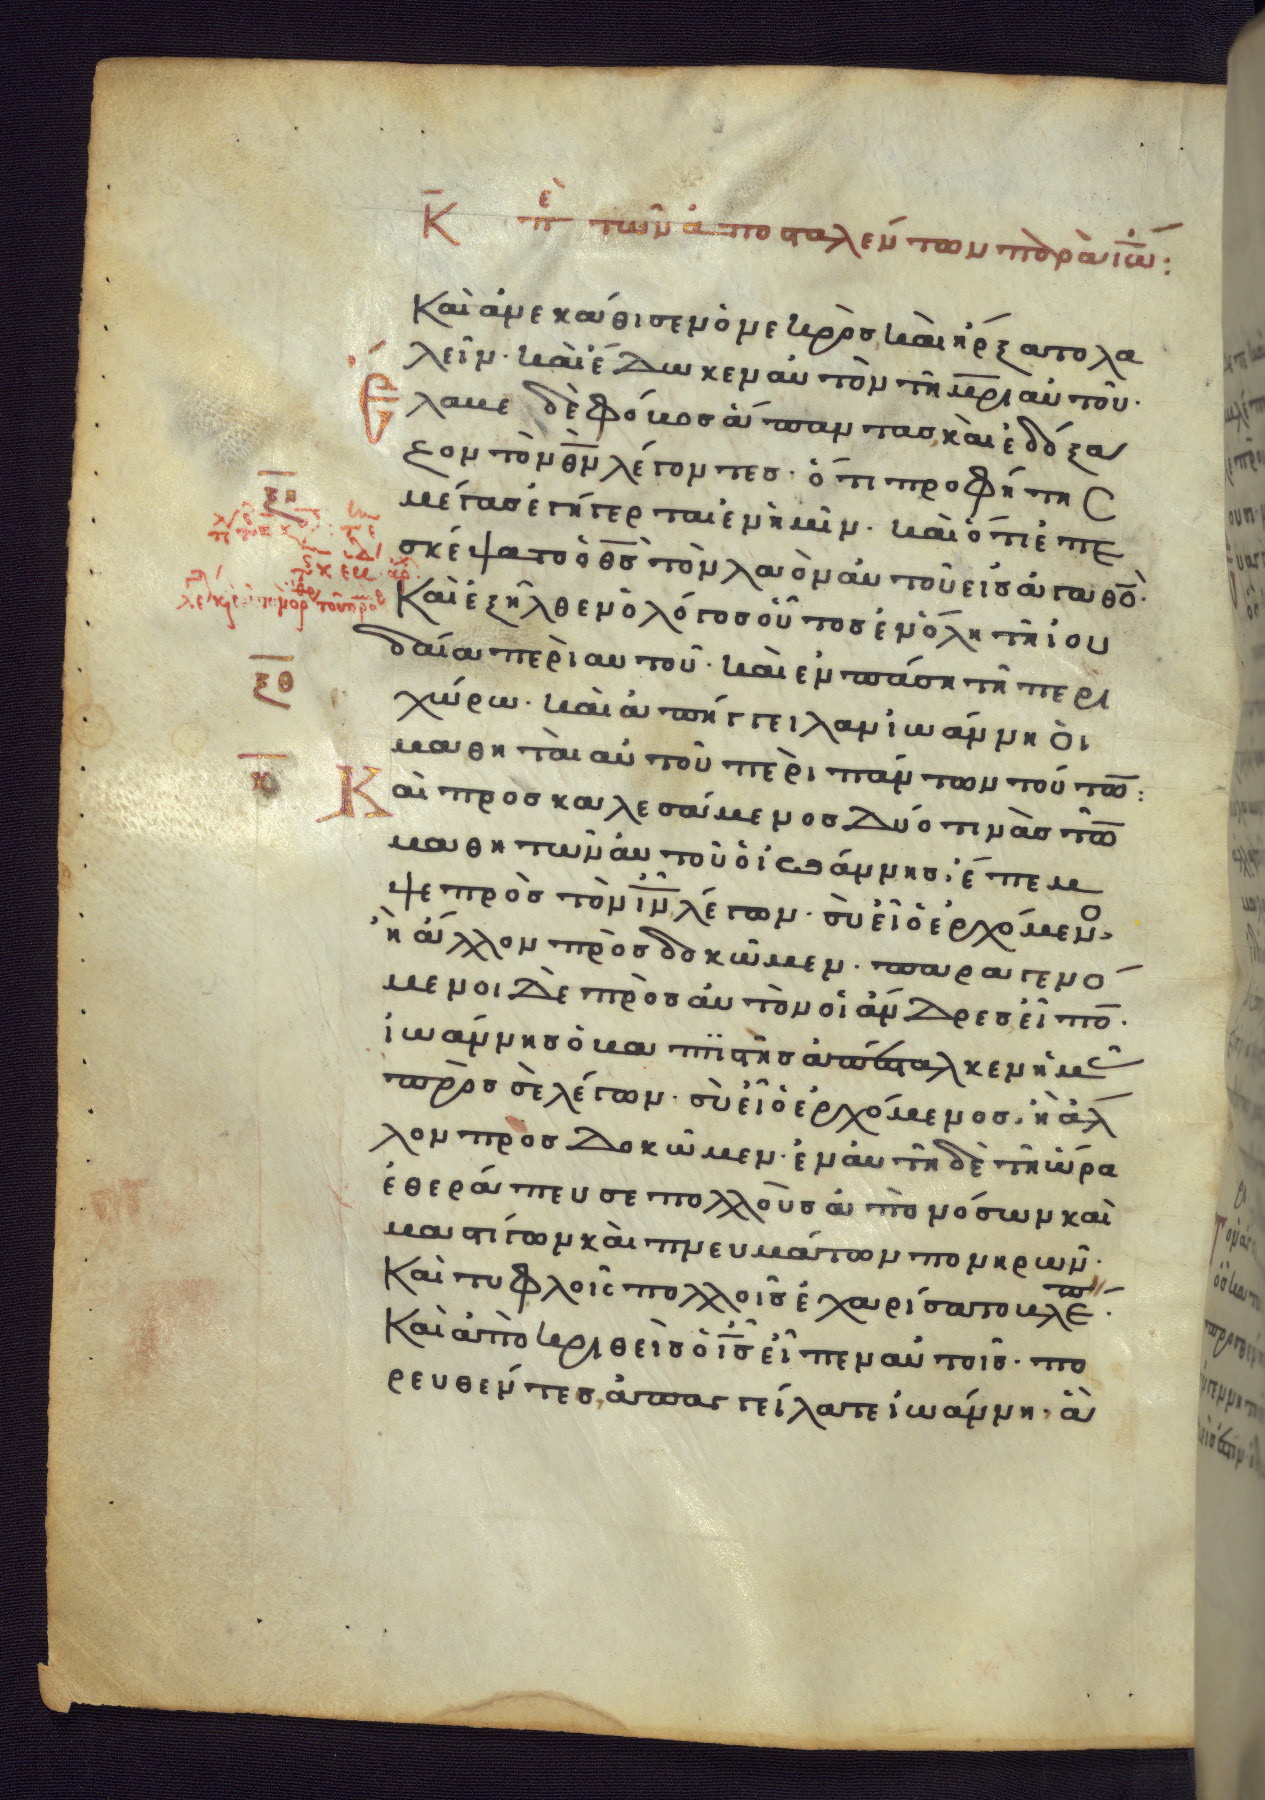 Κ̅ πὲ τῶν ἀποσταλέντων παρὰ ἰω̅:
Καὶ ἀνεκάθισεν ὁ νεκρὸς, καὶ ἤρξατο λα
λεῖν· καὶ ἔδωκεν αὐτὸν τῆ μ̅ρ̅ι αὐτοῦ·
Ἔλαβε δὲ φόβος ἅπαντας, καὶ ἐδόξα
ζον τὸν θ̅ν̅ λέγοντες· ὅτι προφήτης
μέγας ἐγήγερται ἐν ἡμῖν· καὶ ὅτι ἐπε
σκέψατο ὁ θ̅ς̅ τὸν λαὸν αὐτοῦ εἰς ἀγαθό̅·
Καὶ ἐξῆλθεν ὁ λόγος οὗτος ἐν ὅλη τῆ ἰου
δαία περὶ αυτοῦ· καὶ ἐν πάση τῆ περι
χώρω· καὶ ἀπήγγειλαν ἰωάννη ὁι
μαθηταὶ αὐτοῦ περὶ πάντων τούτω̅:
ξη̅
ξθ̅
ο̅
Καὶ προσκαλεσάμενος δύο τινὰς τῶ̅
μαθητῶν αὐτοῦ ὁ ἰωάννης· ἔπεμ
ψε πρὸς τὸν ι̅ν̅ λέγων· σὺ εἶ ὁ ἐρχόμενο·
ἢ ἄλλον προσδοκῶμεν· παραγενό
μενοι δὲ πρὸς αὐτὸν οἱ ἄνδρες εἶπο̅·
ἰωάννης ὁ βαπτιστὴς ἀπέσταλκεν ἡμᾶ
πρὸς σὲ λέγων· σὺ εἶ ὁ ἐρχόμενος, ἢ ἄλ
λον προσδοκῶμεν· ἐν αὐτῆ δὲ τῆ ὥρα
ἐθεράπευσε πολλοὺς ἀπὸ νόσων καὶ
μαστίγων καὶ πνευμάτων πονηρῶν·
Καὶ τυφλοῖς πολλοῖς ἐχαρίσατο βλέ·
Καὶ ἀποκριθεὶς ὁ ι̅ς̅ εἶπεν αὐτοῖς· πο
ρευθέντες, ἀπαγγείλατε ἰωάννη· ἃ